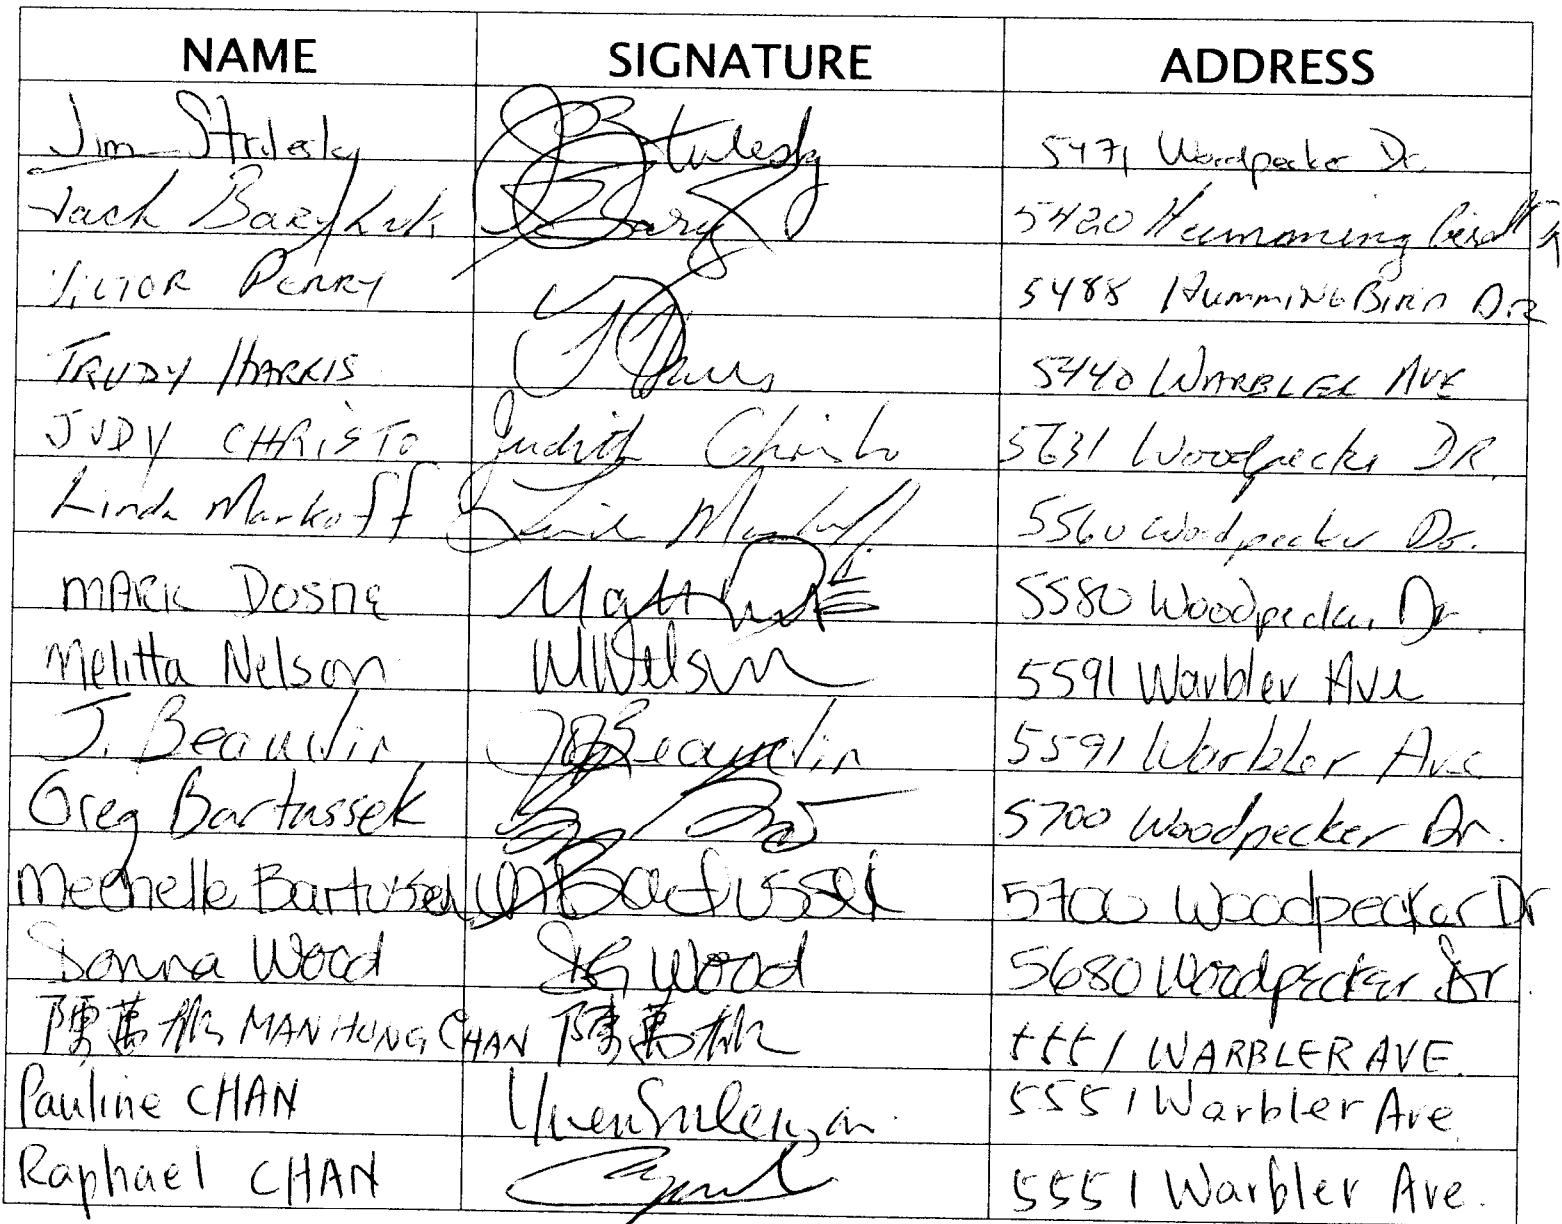 NAME SIGNATURE ADDRESS
Jim 5471 Woodpecker Dr.
Jack 5420 Humming Bird
VICTOR PERRY 5488 HUMMINGBIRD DR
TRUDY HARRIS Harris 5440 WARBLER AVE
JUDY CHRISTO Judith Christo 5631 Woodpecker DR.
Linda Markoff Markoff 5560 Woodpecker Dr.
MARK 5580 Woodpecker Dr.
Melitta Nelson MNelson 5591 Warbler Ave
J. Beaudin Beaudin 5591 Warbler Ave
Greg Bartussek 5700 Woodpecker Dr.
Mechelle Bartussek MBartussek 5700 Woodpecker Dr
Donna Wood DG Wood 5680 Woodpecker Dr.
陳萬 MAN HUNG CHAN 陳萬 5551 WARBLER AVE.
Pauline CHAN 5551 Warbler Ave.
Raphael CHAN 5551 Warbler Ave.